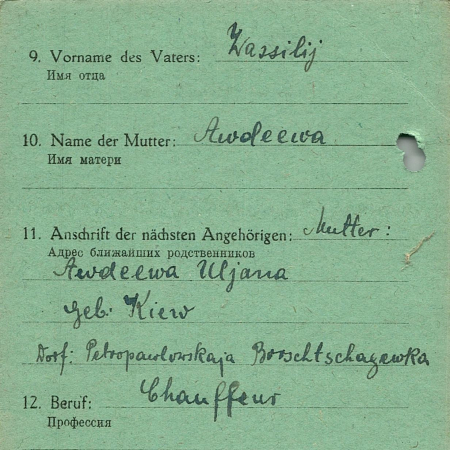 9. Vorname des Vaters: Wassilij
Имя отца
10. Name der Mutter: Awdeewa
Имя матери
11. Anschrift der nächsten Angehörigen: Mutter:
Адрес ближайших родственников
Awdeewa Uljana
Geb: Kiew
Dorf: Petropawlowskaja Borschtschagewka
12. Beruf: Chauffeur
Профессия